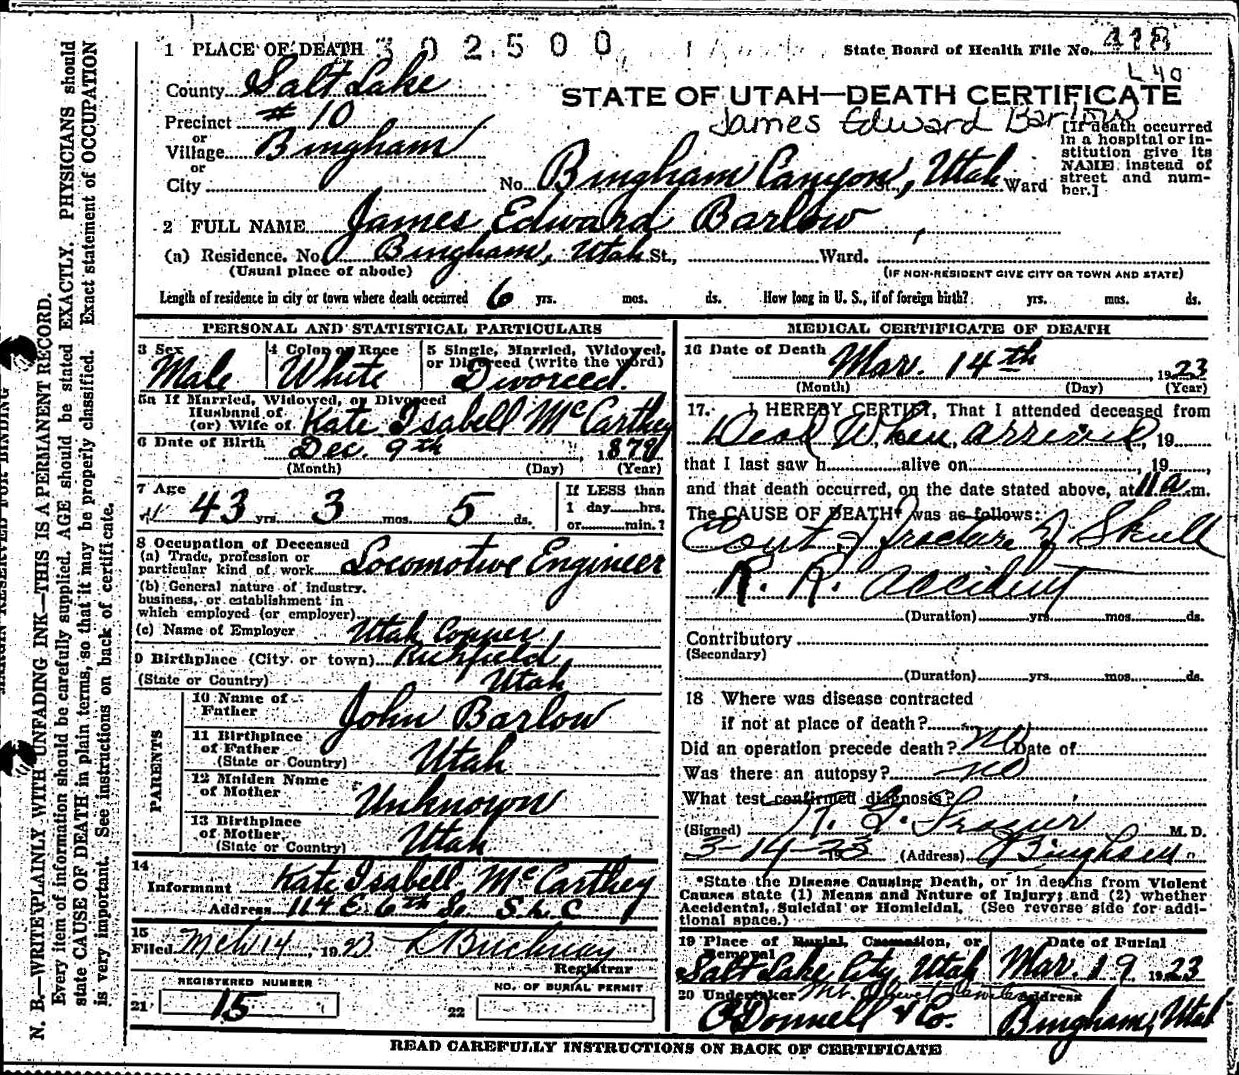 1 PLACE OF DEATH 302500
State Board of Health File No. 418
L 40
County Salt Lake
STATE OF UTAH—DEATH CERTIFICATE
James Edward Barlow
Precinct # 10
or
Village Bingham
or
City
No. Bingham Canyon St., Utah Ward
[If death occurred
in a hospital or in-
stitution give its
NAME instead of
street and num-
ber.]
2 FULL NAME James Edward Barlow
(a) Residence. No. Bingham, Utah St., Ward.
(Usual place of abode)
(IF NON-RESIDENT GIVE CITY OR TOWN AND STATE)
Length of residence in city or town where death occurred 6 yrs. mos. ds. How long in U. S., if of foreign birth? yrs. mos. ds.
PERSONAL AND STATISTICAL PARTICULARS
3 Sex
Male
4 Color or Race
White
5 Single, Married, Widowed,
or Divorced (write the word)
Divorced.
5a If Married, Widowed, or Divorced
Husband of
(or) Wife of Kate Isabell McCarthey
6 Date of Birth Dec. 9th, 1879
(Month) (Day) (Year)
7 Age
43 yrs. 3 mos. 5 ds.
If LESS than
1 day hrs.
or min.?
8 Occupation of Deceased
(a) Trade, profession or
particular kind of work Locomotive Engineer
(b) General nature of industry,
business, or establishment in
which employed (or employer)
(c) Name of Employer Utah Copper
9 Birthplace (City or town) Richfield,
(State or Country) Utah
PARENTS
10 Name of
Father John Barlow
11 Birthplace
of Father
(State or Country) Utah
12 Maiden Name
of Mother Unknown
13 Birthplace
of Mother
(State or Country) Utah
14
Informant Kate Isabell McCarthey
Address 114 E. 6th So. S. L. C
15
Filed Mch 14, 1923 L Buchnay
Registrar
REGISTERED NUMBER
21 15
NO. OF BURIAL PERMIT
22
MEDICAL CERTIFICATE OF DEATH
16 Date of Death Mar. 14th 1923
(Month) (Day) (Year)
17. I HEREBY CERTIFY, That I attended deceased from
Dead When arrived, 19
that I last saw h alive on , 19 ,
and that death occurred, on the date stated above, at 11 a.m.
The CAUSE OF DEATH* was as follows:
fracture of Skull
R. R. accident
(Duration) yrs. mos. ds.
Contributory
(Secondary)
(Duration) yrs. mos. ds.
18 Where was disease contracted
if not at place of death?
Did an operation precede death? no Date of
Was there an autopsy? no
What test confirmed diagnosis?
(Signed) Frazier M. D.
3-14-23 19 (Address) Bingham
*State the Disease Causing Death, or in deaths from Violent
Causes state (1) Means and Nature of Injury; and (2) whether
Accidental, Suicidal or Homicidal. (See reverse side for addi-
tional space.)
19 Place of Burial, Cremation, or
Removal
Salt Lake City, Utah
Date of Burial
Mar. 19 1923
20 Undertaker Mt. Olivet
O'Donnell & Co.
Address
Bingham, Utah
READ CAREFULLY INSTRUCTIONS ON BACK OF CERTIFICATE
MARGIN RESERVED FOR BINDING
N. B.—WRITE PLAINLY WITH UNFADING INK—THIS IS A PERMANENT RECORD.
Every item of information should be carefully supplied. AGE should be stated EXACTLY. PHYSICIANS should
state CAUSE OF DEATH in plain terms, so that it may be properly classified. Exact statement of OCCUPATION
is very important. See instructions on back of certificate.